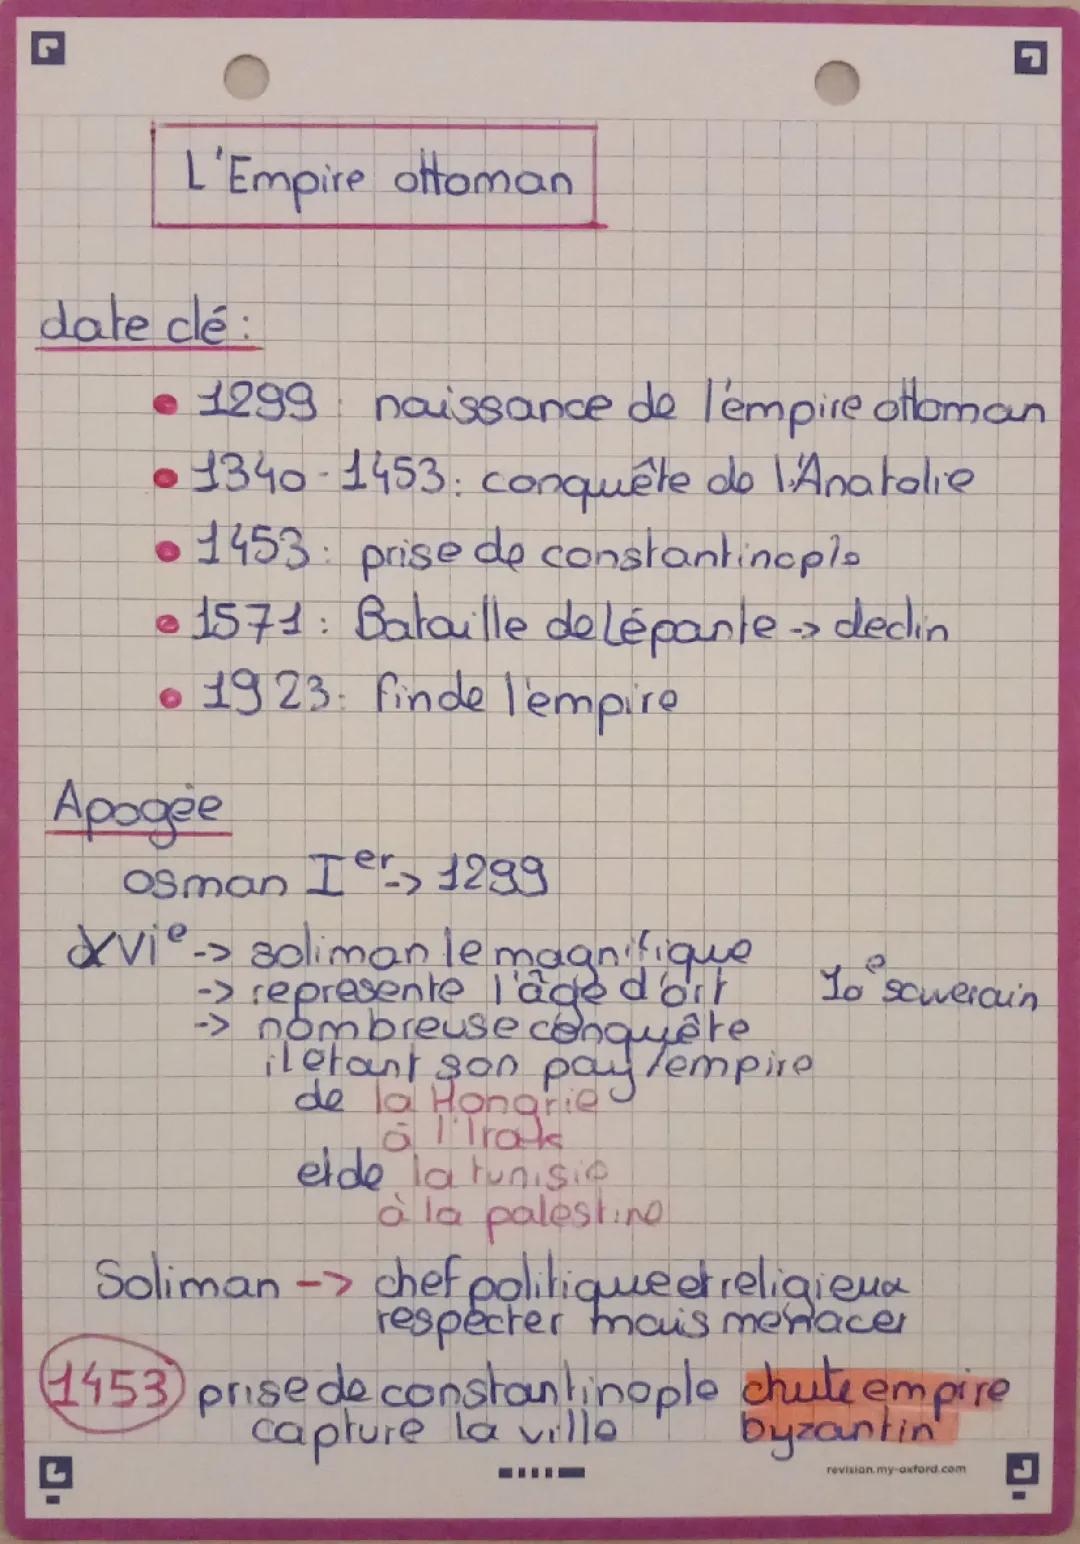 L'Empire ottoman
date clé :
• 1299 : naissance de l'émpire ottoman
• 1340 - 1453 : conquête de l'Anatolie
• 1453 : prise de constantinople
• 1571 : Bataille de Lépante -> declin
• 1923 : fin de l'empire
Apogée
osman Ier -> 1299
XVIe -> soliman le magnifique
-> represente l'âge d'ort 10e souverain
-> nombreuse conquête
il etant son pay/empire
de la Hongrie
à l'Irak
et de la tunisie
à la palestine
Soliman -> chef politique et religieux
respecter mais menacer
1453 prise de constantinople chute empire
capture la ville byzantin
revision.my-oxford.com